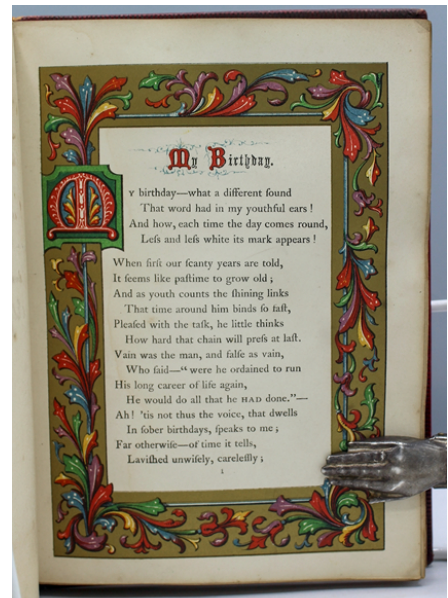 My Birthday.
My birthday—what a different ſound
That word had in my youthful ears !
And how, each time the day comes round,
Leſs and leſs white its mark appears !
When firſt our ſcanty years are told,
It ſeems like paſtime to grow old ;
And as youth counts the ſhining links
That time around him binds ſo faſt,
Pleaſed with the taſk, he little thinks
How hard that chain will preſs at laſt.
Vain was the man, and falſe as vain,
Who ſaid—“ were he ordained to run
His long career of life again,
He would do all that he HAD done.”—
Ah ! 'tis not thus the voice, that dwells
In ſober birthdays, ſpeaks to me ;
Far otherwiſe—of time it tells,
Laviſhed unwiſely, careleſſly ;